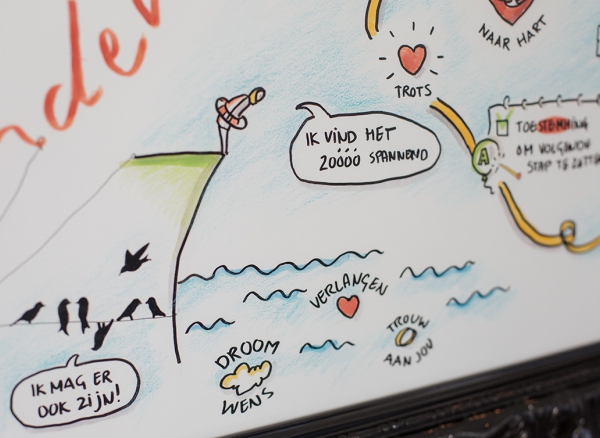 nder
NAAR HART
TROTS
IK VIND HET
ZOÓÓÓ SPANNEND
TOESTEMMING
OM VOLGENDE
STAP TE ZETTEN
A
VERLANGEN
TROUW
AAN JOU
DROOM
WENS
IK MAG ER
OOK ZIJN!